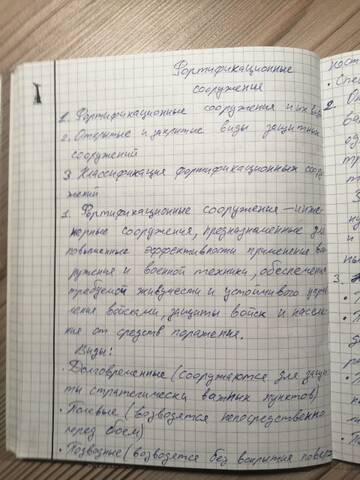 Фортификационные
сооружения
1. Фортификационные сооружения и их виды
2. Открытые и закрытые виды защитных
сооружений
3. Классификация фортификационных соору-
жений
1. Фортификационные сооружения — инже-
нерные сооружения, предназначенные для
повышения эффективности применения воо
ружения и военной техники, обеспечения
требуемой живучести и устойчивого управ
ления войсками, защиты войск и населе
ния от средств поражения.
Виды:
• Долговременные (сооружаются для защи
ты стратегически важных пунктов)
• Полевые (возводятся непосредственно
перед боем)
• Подводные (возводятся без вскрытия поверх
• Спе
2.
3.